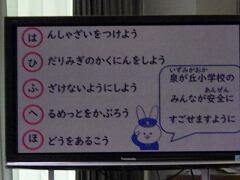 は んしゃざいをつけよう
ひ だりみぎのかくにんをしよう
ふ ざけないようにしよう
へ るめっとをかぶろう
ほ どうをあるこう
いずみがおか
泉が丘小学校の
あんぜん
みんなが安全に
すごせますように
Panasonic